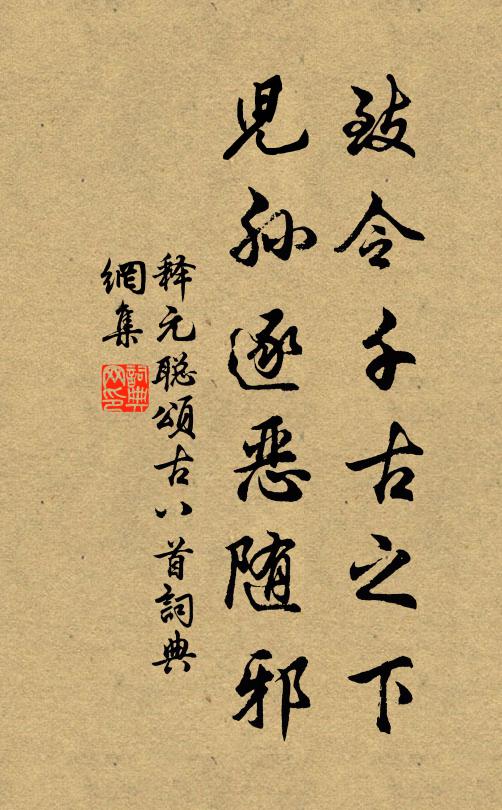 致令千古之下
児孙逐恶随邪
释元聪颂古八首詞典
網集
詞典
网印